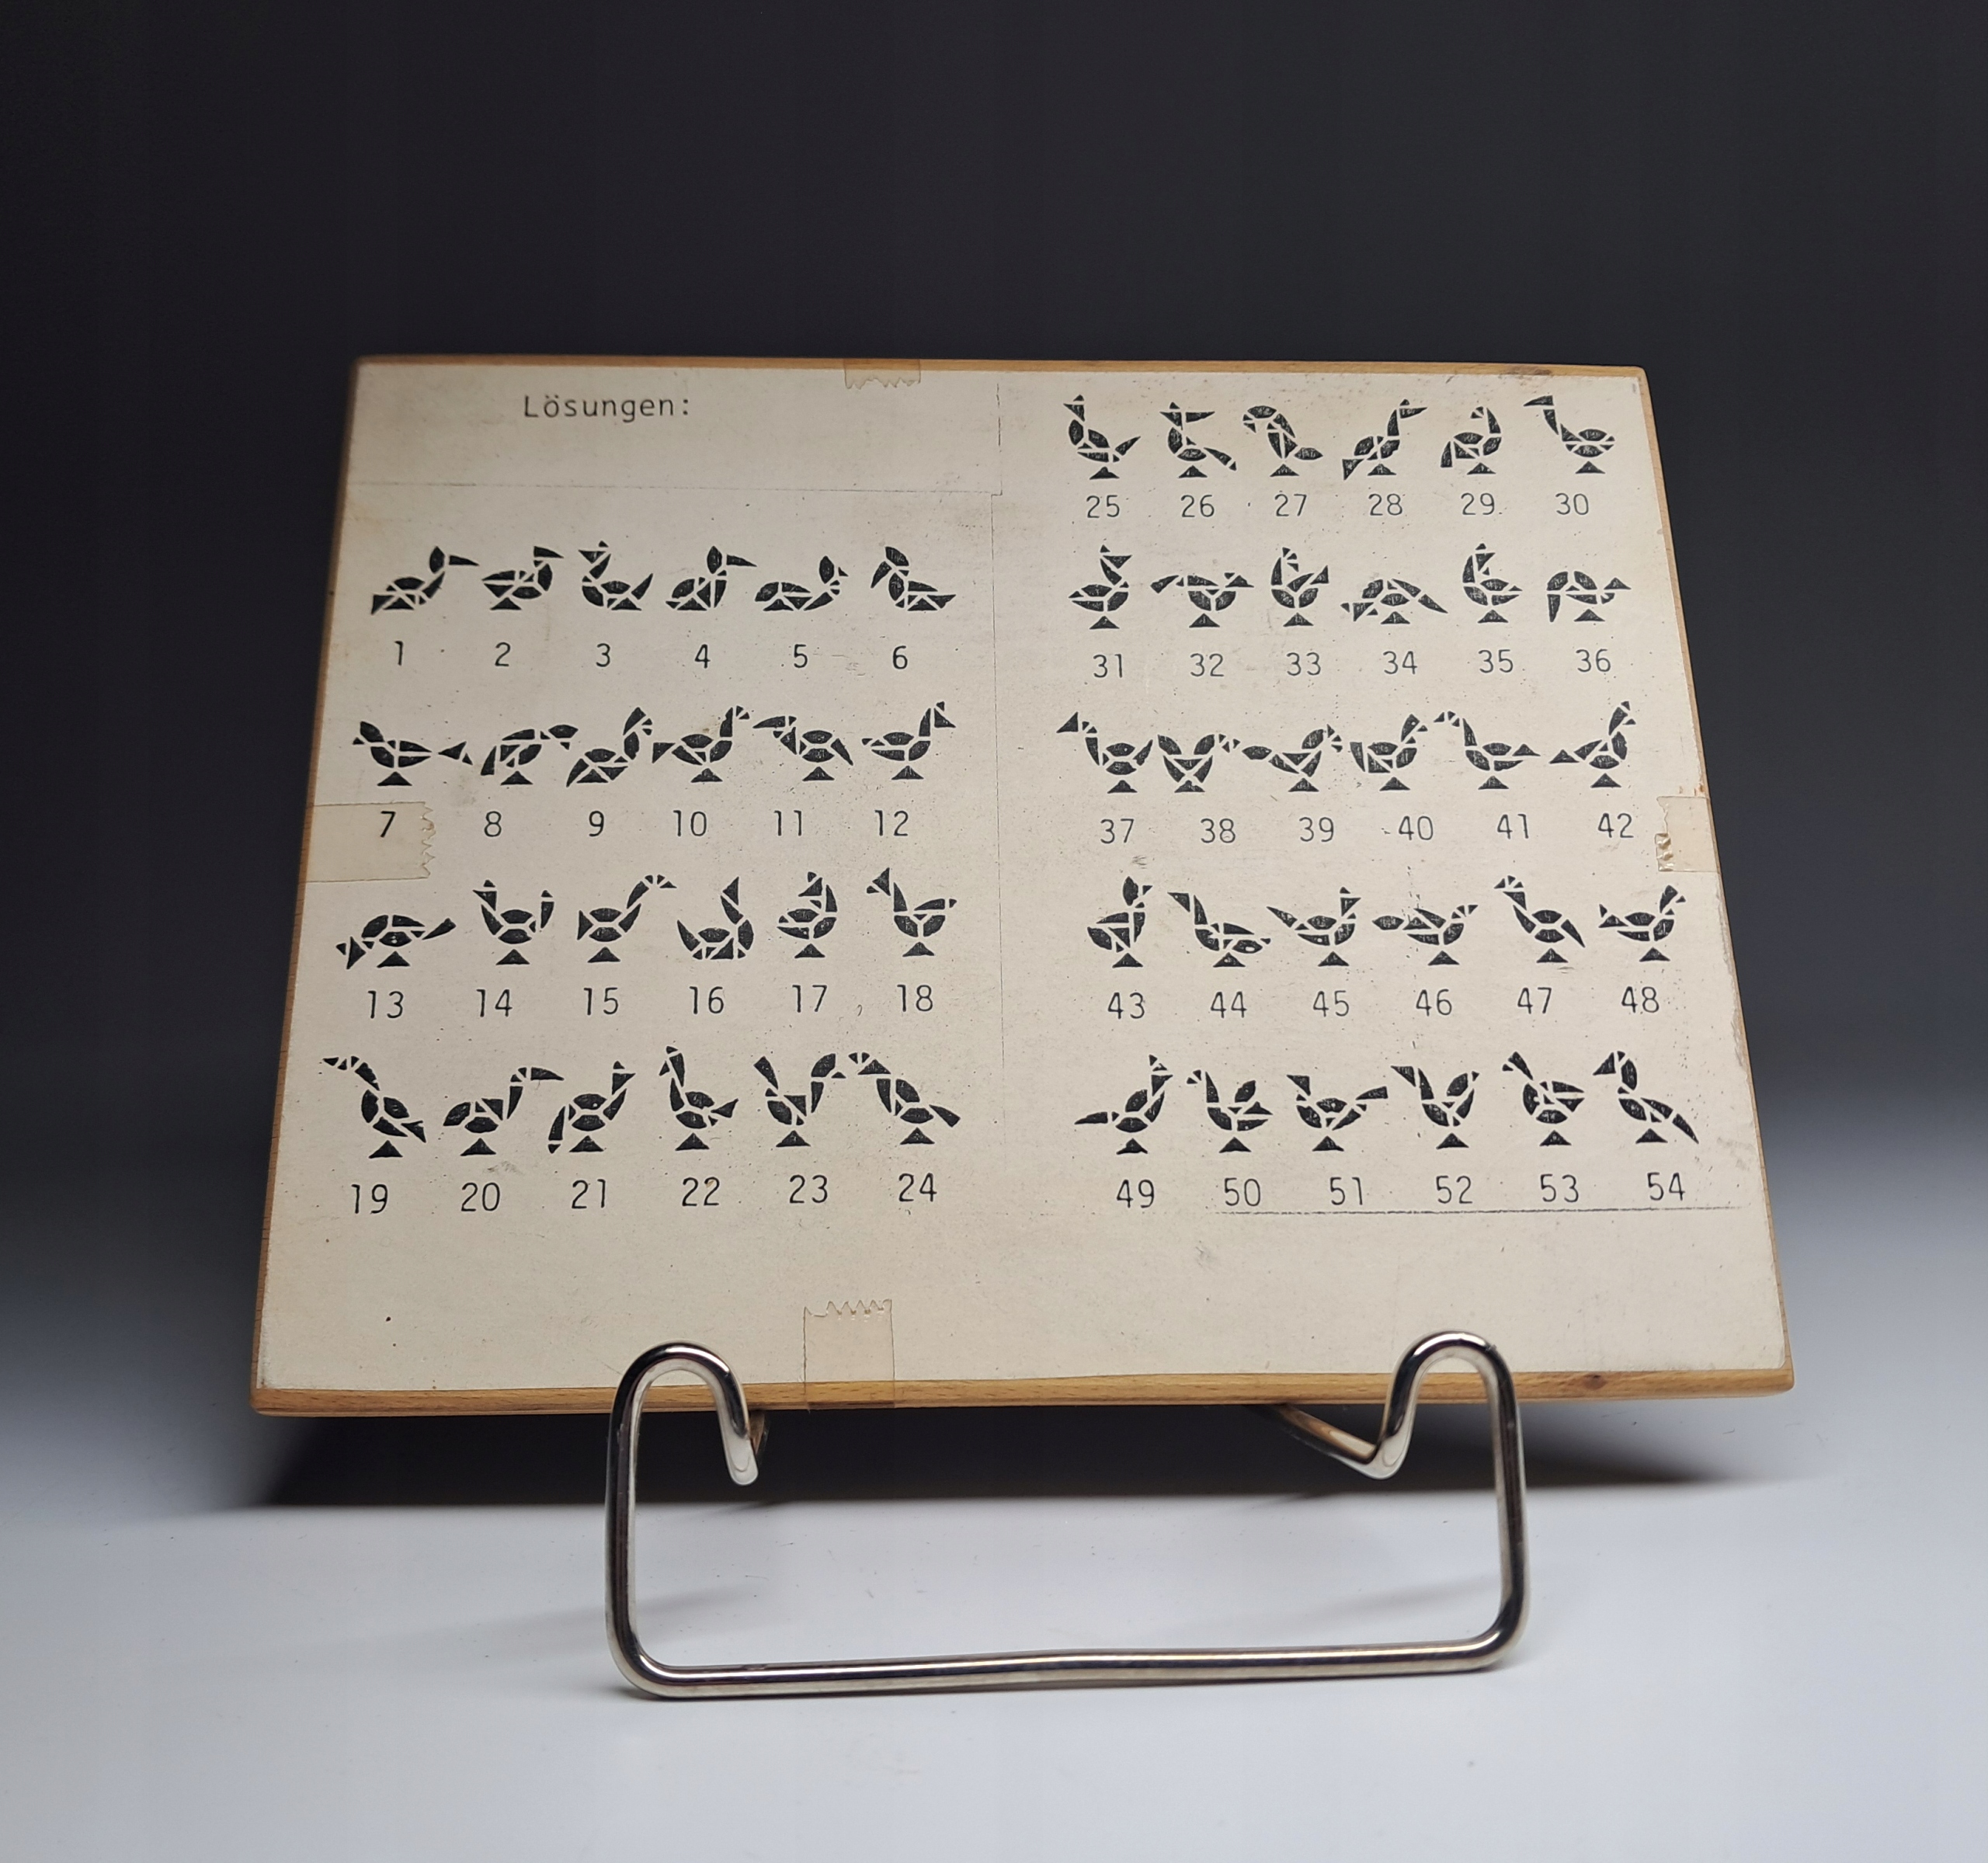 Lösungen:
1 2 3 4 5 6
7 8 9 10 11 12
13 14 15 16 17 18
19 20 21 22 23 24
25 26 27 28 29 30
31 32 33 34 35 36
37 38 39 40 41 42
43 44 45 46 47 48
49 50 51 52 53 54